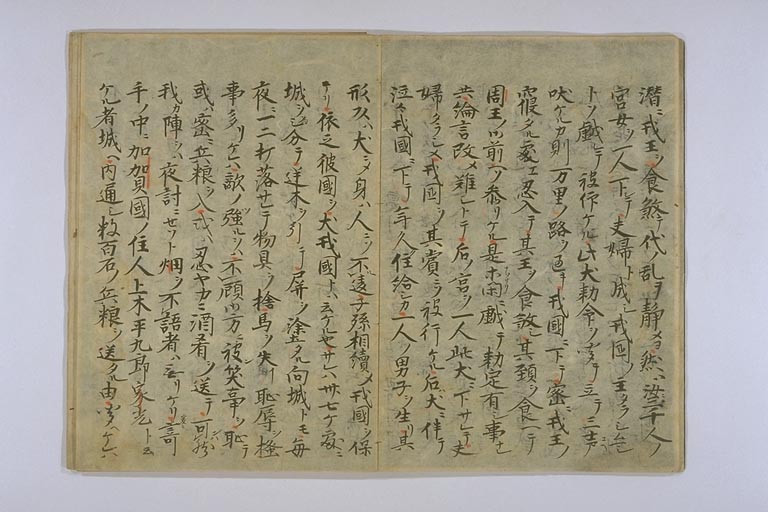 潜ニ我王ヲ食煞テ代ノ乱ヲ静ヨ然ハ汝ニ千人ノ
宮女ヲ一人下テ夫婦ト成シ我國ノ王タラシムヘシ
ト戯テ被仰ケル此犬勅命ヲ聞テ立テ三声
吠ケルカ則一万里ノ路ヲ過テ我國ニ下テ蜜ニ我王ノ
寝タル處エ忍入テ其王ヲ食煞シ其頚ヲ食一テ
周王ノ前ヘ参リケル是ホ閑ニ戯テ勅定有シ事ヲ
共綸言改メ難シトテ后ノ宮ヲ一人此犬ニ下サレテ夫
婦タラシメ我國ヲ其賞ニ被行ケル后犬ニ伴テ
泣々我國ニ下テ年久住給シカ一人ノ男子ヲ生リ其
形ハ犬ニメ身ハ人ニソ不違子孫相續メ我國ヲ保
ケリ依之彼國ヲ犬我國トハ云ケルヤサレハ卅七ケ處ニ
城ヲ分テ逆木ヲ引テ屏ヲ塗タル向城トモ毎
夜ニ一二打落サレテ物具ヲ捨馬ヲ失ヒ恥辱ヲ
事多リケレハ敵ノ強ルヲハ不顧御方ニ被笑事ヲ恥テ
或ハ蜜ニ兵粮ヲ入テ忍ヤカニ酒肴ヲ送テ可然
我カ陣ヲハ夜討ニセヌト畑ヲ不語者ハ無リケリ
手ノ中ニ加賀國ノ住人上木平九郎家光ト云
ケル者城ヘ内通シ数百石ノ兵粮ヲ送タル由聞ヘケレハ